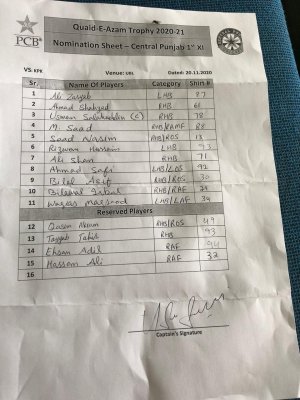 PCB
Quaid-E-Azam Trophy 2020-21
Nomination Sheet – Central Punjab 1st XI
VS: KPK Venue: UBL Dated: 20.11.2020
Sr. Name Of Players Category Shirt #
1 Ali Zaryab LHB 87
2 Ahmad Shahzad RHB
3 Usman Salahuddin (C) RHB 78
4 M. Saad RHB/RAMF 88
5 Saad Nasim RHB/ROS 13
6 Rizwan Hussain LHB
7 Ali Shan RHB 71
8 Ahmad Safi LHB/LOS 92
9 Bilal Asif RHB/ROS 30
10 Bilawal Iqbal RHB/RAF
11 Waqas Maqsood LHB/LAF
Reserved Players
12 Qasim Akram RHB/ROS 49
13 Tayyab Tahir RHB 93
14 Ehsan Adil RAF 94
15 Hassan Ali RAF 32
16
Captain's Signature